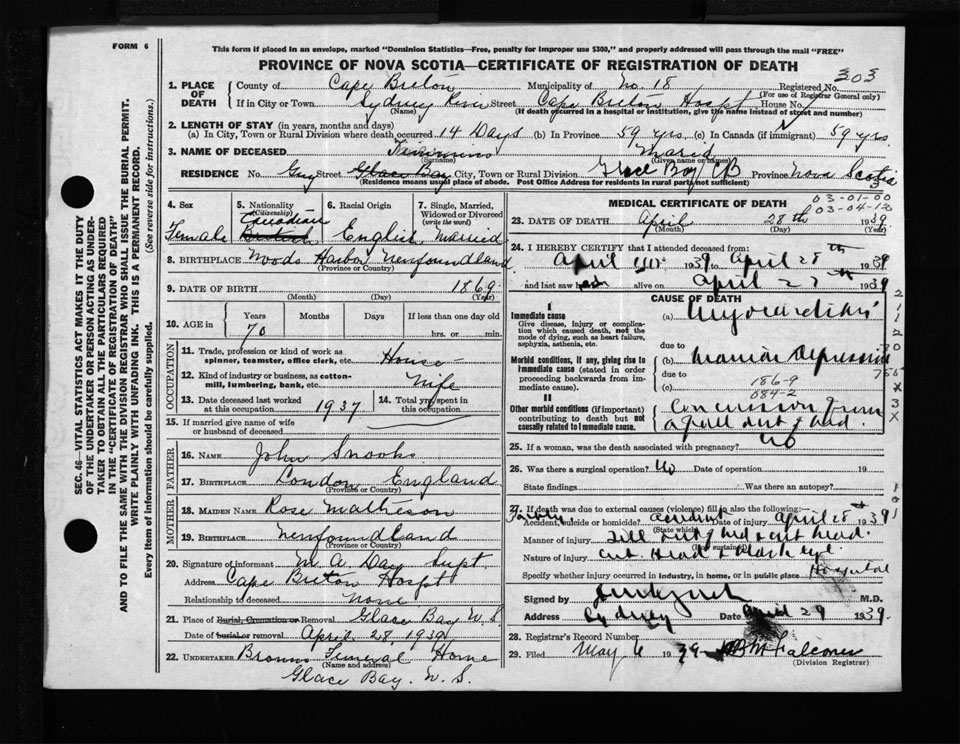 FORM 6
This form if placed in an envelope, marked "Dominion Statistics—Free, penalty for improper use $300," and properly addressed will pass through the mail "FREE"
PROVINCE OF NOVA SCOTIA—CERTIFICATE OF REGISTRATION OF DEATH
SEC. 46—VITAL STATISTICS ACT MAKES IT THE DUTY
OF THE UNDERTAKER OR PERSON ACTING AS UNDER-
TAKER TO OBTAIN ALL THE PARTICULARS REQUIRED
IN THE "CERTIFICATE OF REGISTRATION OF DEATH"
AND TO FILE THE SAME WITH THE DIVISION REGISTRAR WHO SHALL ISSUE THE BURIAL PERMIT.
WRITE PLAINLY WITH UNFADING INK. THIS IS A PERMANENT RECORD.
Every item of information should be carefully supplied. (See reverse side for instructions.)
1. PLACE OF DEATH
County of Cape Breton Municipality of No. 18 Registered No. 303
(For use of Registrar General only)
If in City or Town Sydney Street Cape Breton Hospt House No.
(If death occurred in a hospital or institution, give the name instead of street and number)
2. LENGTH OF STAY (in years, months and days)
(a) In City, Town or Rural Division where death occurred 14 Days (b) In Province 59 yrs. (c) In Canada (if immigrant) 59 yrs
3. NAME OF DECEASED Marie
(Surname) (Given name or names)
RESIDENCE No. Street Glace Bay City, Town or Rural Division Glace Bay CB Province Nova Scotia
(Residence means usual place of abode. Post Office Address for residents in rural parts not sufficient)
4. Sex Female
5. Nationality (Citizenship) Canadian British
6. Racial Origin English
7. Single, Married, Widowed or Divorced (write the word) Married
8. BIRTHPLACE Woods Harbor Newfoundland
(Province or Country)
9. DATE OF BIRTH 1869
(Month) (Day) (Year)
10. AGE in Years Months Days If less than one day old
70 hrs. or min.
OCCUPATION
11. Trade, profession or kind of work as spinner, teamster, office clerk, etc. House
12. Kind of industry or business, as cotton-mill, lumbering, bank, etc. Wife
13. Date deceased last worked at this occupation 1937 14. Total yrs. spent in this occupation
15. If married give name of wife or husband of deceased
FATHER
16. NAME John Snooks
17. BIRTHPLACE London England
(Province or Country)
MOTHER
18. MAIDEN NAME Rose Matheson
19. BIRTHPLACE Newfoundland
(Province or Country)
20. Signature of informant M. A. Day Supt
Address Cape Breton Hospt
Relationship to deceased none
21. Place of Burial, Cremation or Removal Glace Bay N. S.
Date of burial or removal April 28 1939
22. UNDERTAKER Browns Funeral Home
(Name and address)
Glace Bay. N. S.
MEDICAL CERTIFICATE OF DEATH
03-01-00
03-04-13
23. DATE OF DEATH April 28th 1939
(Month) (Day) (Year)
24. I HEREBY CERTIFY that I attended deceased from:
April 1939 to April 28th 1939
and last saw alive on April 27th 1939
CAUSE OF DEATH
I
Immediate cause
Give disease, injury or complication which caused death, not the mode of dying, such as heart failure, asphyxia, asthenia, etc.
(a) Myocarditis
due to
Morbid conditions, if any, giving rise to immediate cause (stated in order proceeding backwards from immediate cause).
(b) Manic Depressive
due to
(c)
186-9
084-2
II
Other morbid conditions (if important) contributing to death but not causally related to immediate cause.
Concussion from
a fall out of bed.
25. If a woman, was the death associated with pregnancy? No
26. Was there a surgical operation? No Date of operation 19
State findings Was there an autopsy?
27. If death was due to external causes (violence) fill in also the following:
Accident, suicide or homicide? accident Date of injury April 28th 1939
(State which)
Manner of injury Fell out of bed & cut head.
(How sustained)
Nature of injury Cut Head & black eye
Specify whether injury occurred in industry, in home, or in public place Hospital
Signed by M.D.
Address Sydney Date April 29 1939.
28. Registrar's Record Number
29. Filed May 6 1939 B M Falconer
(Division Registrar)